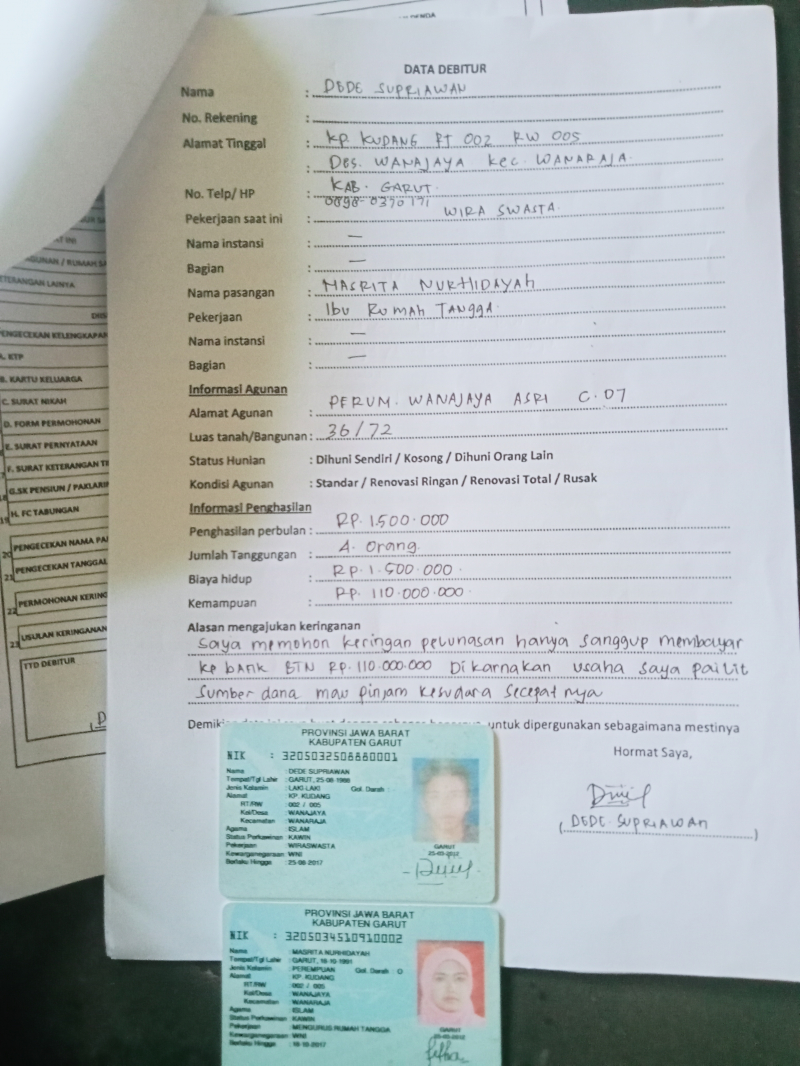 DATA DEBITUR
Nama : DEDE SUPRIAWAN
No. Rekening :
Alamat Tinggal : KP KUDANG RT 002 RW 005
: DES. WANAJAYA KEC. WANARAJA
KAB. GARUT
No. Telp/ HP :
Pekerjaan saat ini : WIRA SWASTA
Nama instansi : —
Bagian : —
Nama pasangan : MASRITA NURHIDAYAH
Pekerjaan : Ibu Rumah Tangga
Nama instansi : —
Bagian : —
Informasi Agunan
Alamat Agunan : PERUM. WANAJAYA ASRI C.07
Luas tanah/Bangunan : 36/72
Status Hunian : Dihuni Sendiri / Kosong / Dihuni Orang Lain
Kondisi Agunan : Standar / Renovasi Ringan / Renovasi Total / Rusak
Informasi Penghasilan
Penghasilan perbulan : RP. 1.500.000
Jumlah Tanggungan : 4. Orang
Biaya hidup : RP. 1.500.000
Kemampuan : RP. 110.000.000
Alasan mengajukan keringanan
Saya memohon keringan pelunasan hanya sanggup membayar
ke bank BTN RP. 110.000.000 Di karnakan usaha saya pailit
Sumber dana mau pinjam kesudara secepat nya
untuk dipergunakan sebagaimana mestinya
Hormat Saya,
(DEDE SUPRIAWAN)
PROVINSI JAWA BARAT
KABUPATEN GARUT
NIK : 3205032508880001
Nama : DEDE SUPRIAWAN
Tempat/Tgl Lahir : GARUT, 25-08-1988
Jenis Kelamin : LAKI-LAKI Gol. Darah : -
Alamat : KP. KUDANG
RT/RW : 002 / 005
Kel/Desa : WANAJAYA
Kecamatan : WANARAJA
Agama : ISLAM
Status Perkawinan : KAWIN
Pekerjaan : WIRASWASTA
Kewarganegaraan : WNI
Berlaku Hingga : 25-08-2017
GARUT
PROVINSI JAWA BARAT
KABUPATEN GARUT
NIK : 3205034510910002
Nama : MASRITA NURHIDAYAH
Tempat/Tgl Lahir : GARUT,
Jenis Kelamin : PEREMPUAN Gol. Darah : O
Alamat : KP. KUDANG
RT/RW : 002 / 005
Kel/Desa : WANAJAYA
Kecamatan : WANARAJA
Agama : ISLAM
Status Perkawinan : KAWIN
Pekerjaan : MENGURUS RUMAH TANGGA
Kewarganegaraan : WNI
Berlaku Hingga :
GARUT
KETERANGAN LAINYA
PENGECEKAN KELENGKAPAN
A. KTP
B. KARTU KELUARGA
C. SURAT NIKAH
D. FORM PERMOHONAN
E. SURAT PERNYATAAN
F. SURAT KETERANGAN
G. SK PENSIUN /
H. FC TABUNGAN
PENGECEKAN NAMA
PENGECEKAN TANGGAL
PERMOHONAN
USULAN KERINGANAN
TTD DEBITUR